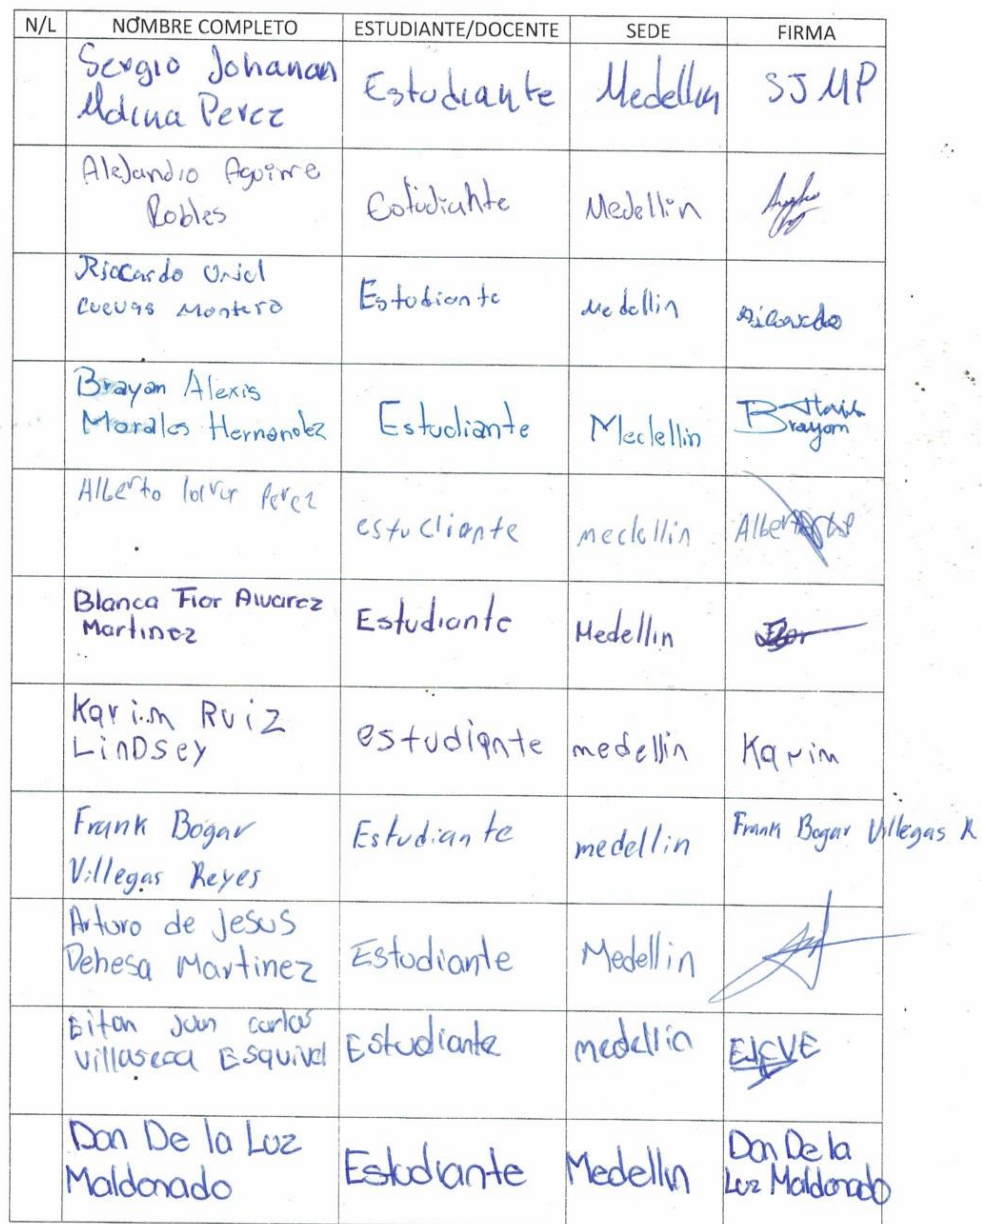 N/L NOMBRE COMPLETO ESTUDIANTE/DOCENTE SEDE FIRMA
Sergio Johanan
Mdina Perez Estudiante Medellin SJMP
Alejandro Aguirre
Robles Estudiante Medellin
Riccardo Uriel
Cuevas Montero Estudiante Medellin Ricardo
Brayam Alexis
Morales Hernandez Estudiante Medellin Brayam
Alberto Perez
estudiante medellin Alberto
Blanca Flor Alvarez
Martinez Estudiante Medellin Flor
Karim Ruiz
LinDsey estudiante medellin Karim
Frank Bogar
Villegas Reyes Estudiante medellin Frank Bogar Villegas R
Arturo de jesus
Dehesa Martinez Estudiante Medellin
Eitan Juan carlos
Villaseca Esquivel Estudiante medellin EJCVE
Dan De la Luz
Maldonado Estudiante Medellin Dan De la
Luz Maldonado